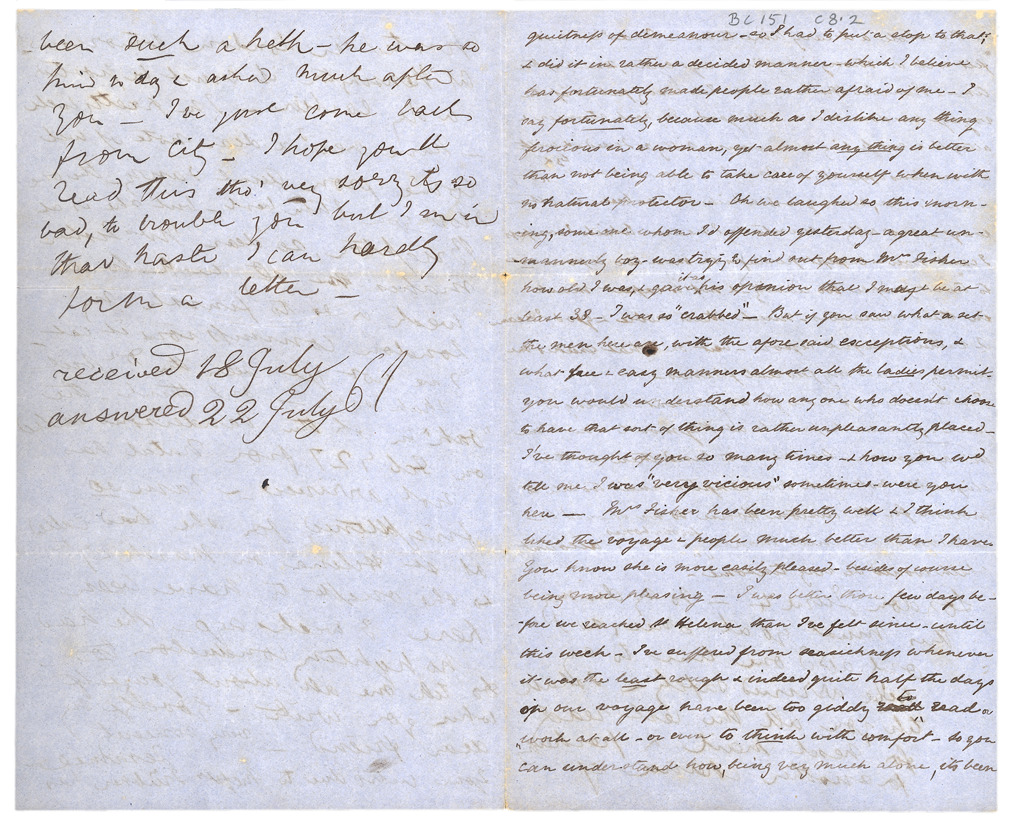 been such a
he was so
kind to day & asked much after
you – I've just come back
from city – I hope you'll
read this tho' very sorry its so
bad, to trouble you but I'm in
that haste I can hardly
form a letter –
received 18 July
answered 22 July 61
BC 151 C8.2
quietness of demeanour – so I had to put a stop to that,
& did it in rather a decided manner – which I believe
has fortunately made people rather afraid of me – I
say fortunately, because much as I dislike any thing
ferocious in a woman, yet almost any thing is better
than not being able to take care of yourself when with
no natural protector – Oh we laughed so this morn-
ing, some one whom I'd offended yesterday – a great un-
mannerly boy – was trying to find out from Mrs Fisher
how old I was, & gave it as his opinion that I must be at
least 38 – I was so "crabbed" – But if you saw what a set
the men here are, with the afore said exceptions, &
what free & easy manners almost all the ladies permit
you would understand how any one who doesn't choose
to have that sort of thing is rather unpleasantly placed –
I've thought of you so many times – & how you wd
tell me I was "very vicious" sometimes – were you
here — Mrs Fisher has been pretty well & I think
liked the voyage & people much better than I have
You know she is more easily pleased – besides of course
being more pleasing – I was better those few days be-
fore we reached St Helena than I've felt since – until
this week – I've suffered from seasickness whenever
it was the least rough & indeed quite half the days
of our voyage have been too giddy to read or
"work at all – or even to think with comfort" – so you
can understand how, being very much alone, its been